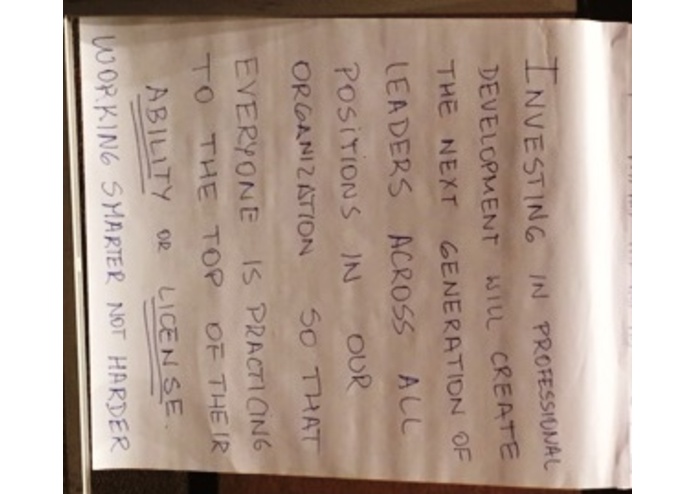 INVESTING IN PROFESSIONAL
DEVELOPMENT WILL CREATE
THE NEXT GENERATION OF
LEADERS ACROSS ALL
POSITIONS IN OUR
ORGANIZATION SO THAT
EVERYONE IS PRACTICING
TO THE TOP OF THEIR
ABILITY OR LICENSE.
WORKING SMARTER NOT HARDER